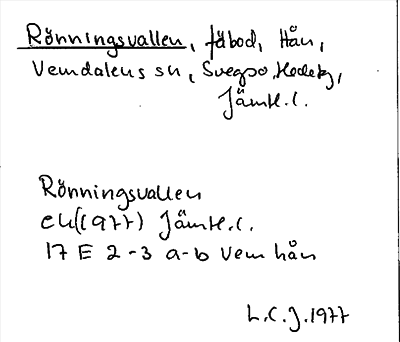 Rönningsvallen, fäbod, Hån,
Vemdalens sn, Svegso, Hedebg,
Jämtl.l.
Rönningsvallen
ek (1977) Jämtl.l.
17 E 2-3 a-b Vemhån
L.C.J. 1977